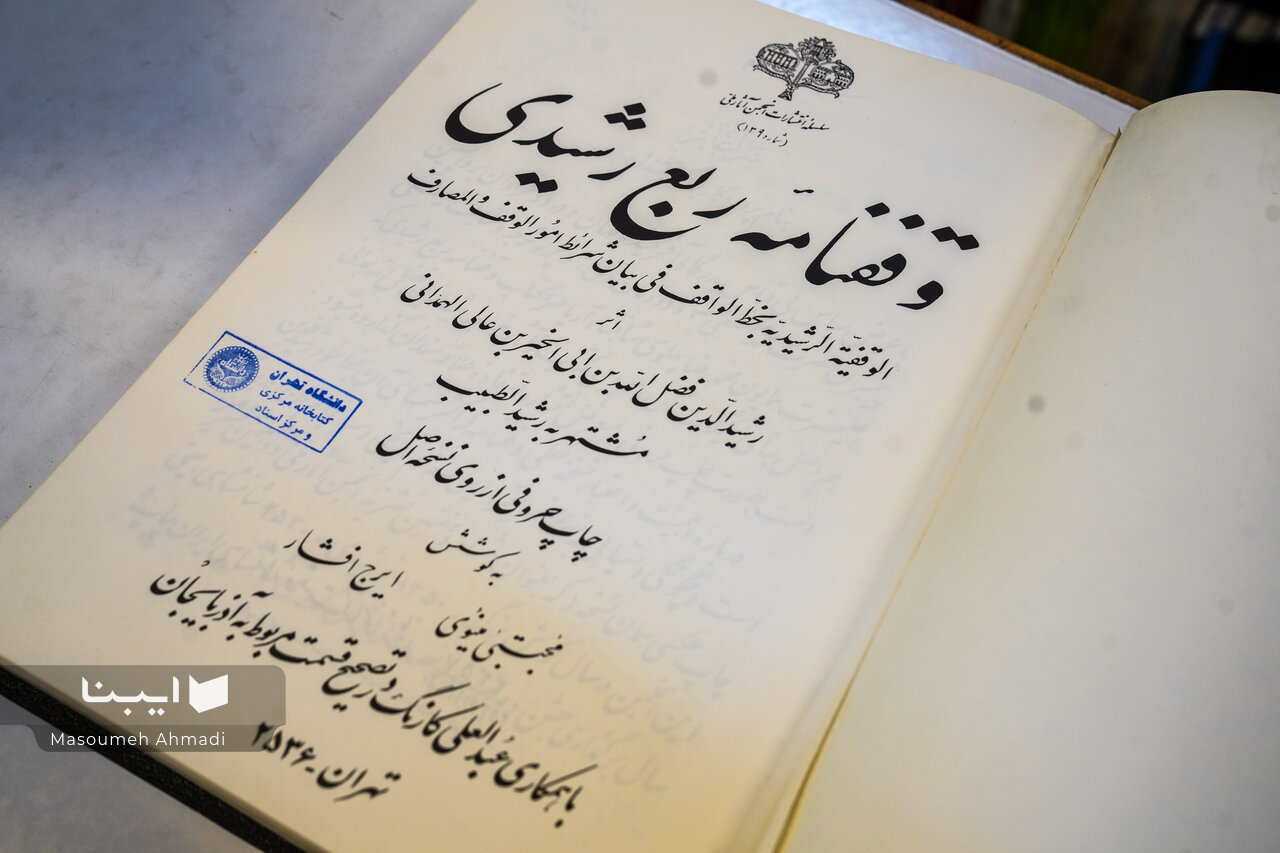 سلسله انتشارات انجمن آثار ملی
(شماره ۱۳۹)
وقفنامه ربع رشیدی
الوقفیة الرشیدیّه بخطّ الواقف فی بیان شرائط امُور الوقف و المصارف
اثر
رشید الدّین فضل الله بن ابی الخیر بن عالی الهمدانی
مُشتهر به رشید الطّبیب
چاپ حروفی از روی نسخهٔ اصل
به کوشش
مجتبیٰ مینوی
ایرج افشار
با همکاری عبدُ العلی کارنگ در تصحیح قسمت مربوط به آذربایجان
تهران - ۲۵۳۶
دانشگاه تهران
کتابخانه مرکزی
و مرکز اسناد
ایبنا
Masoumeh Ahmadi